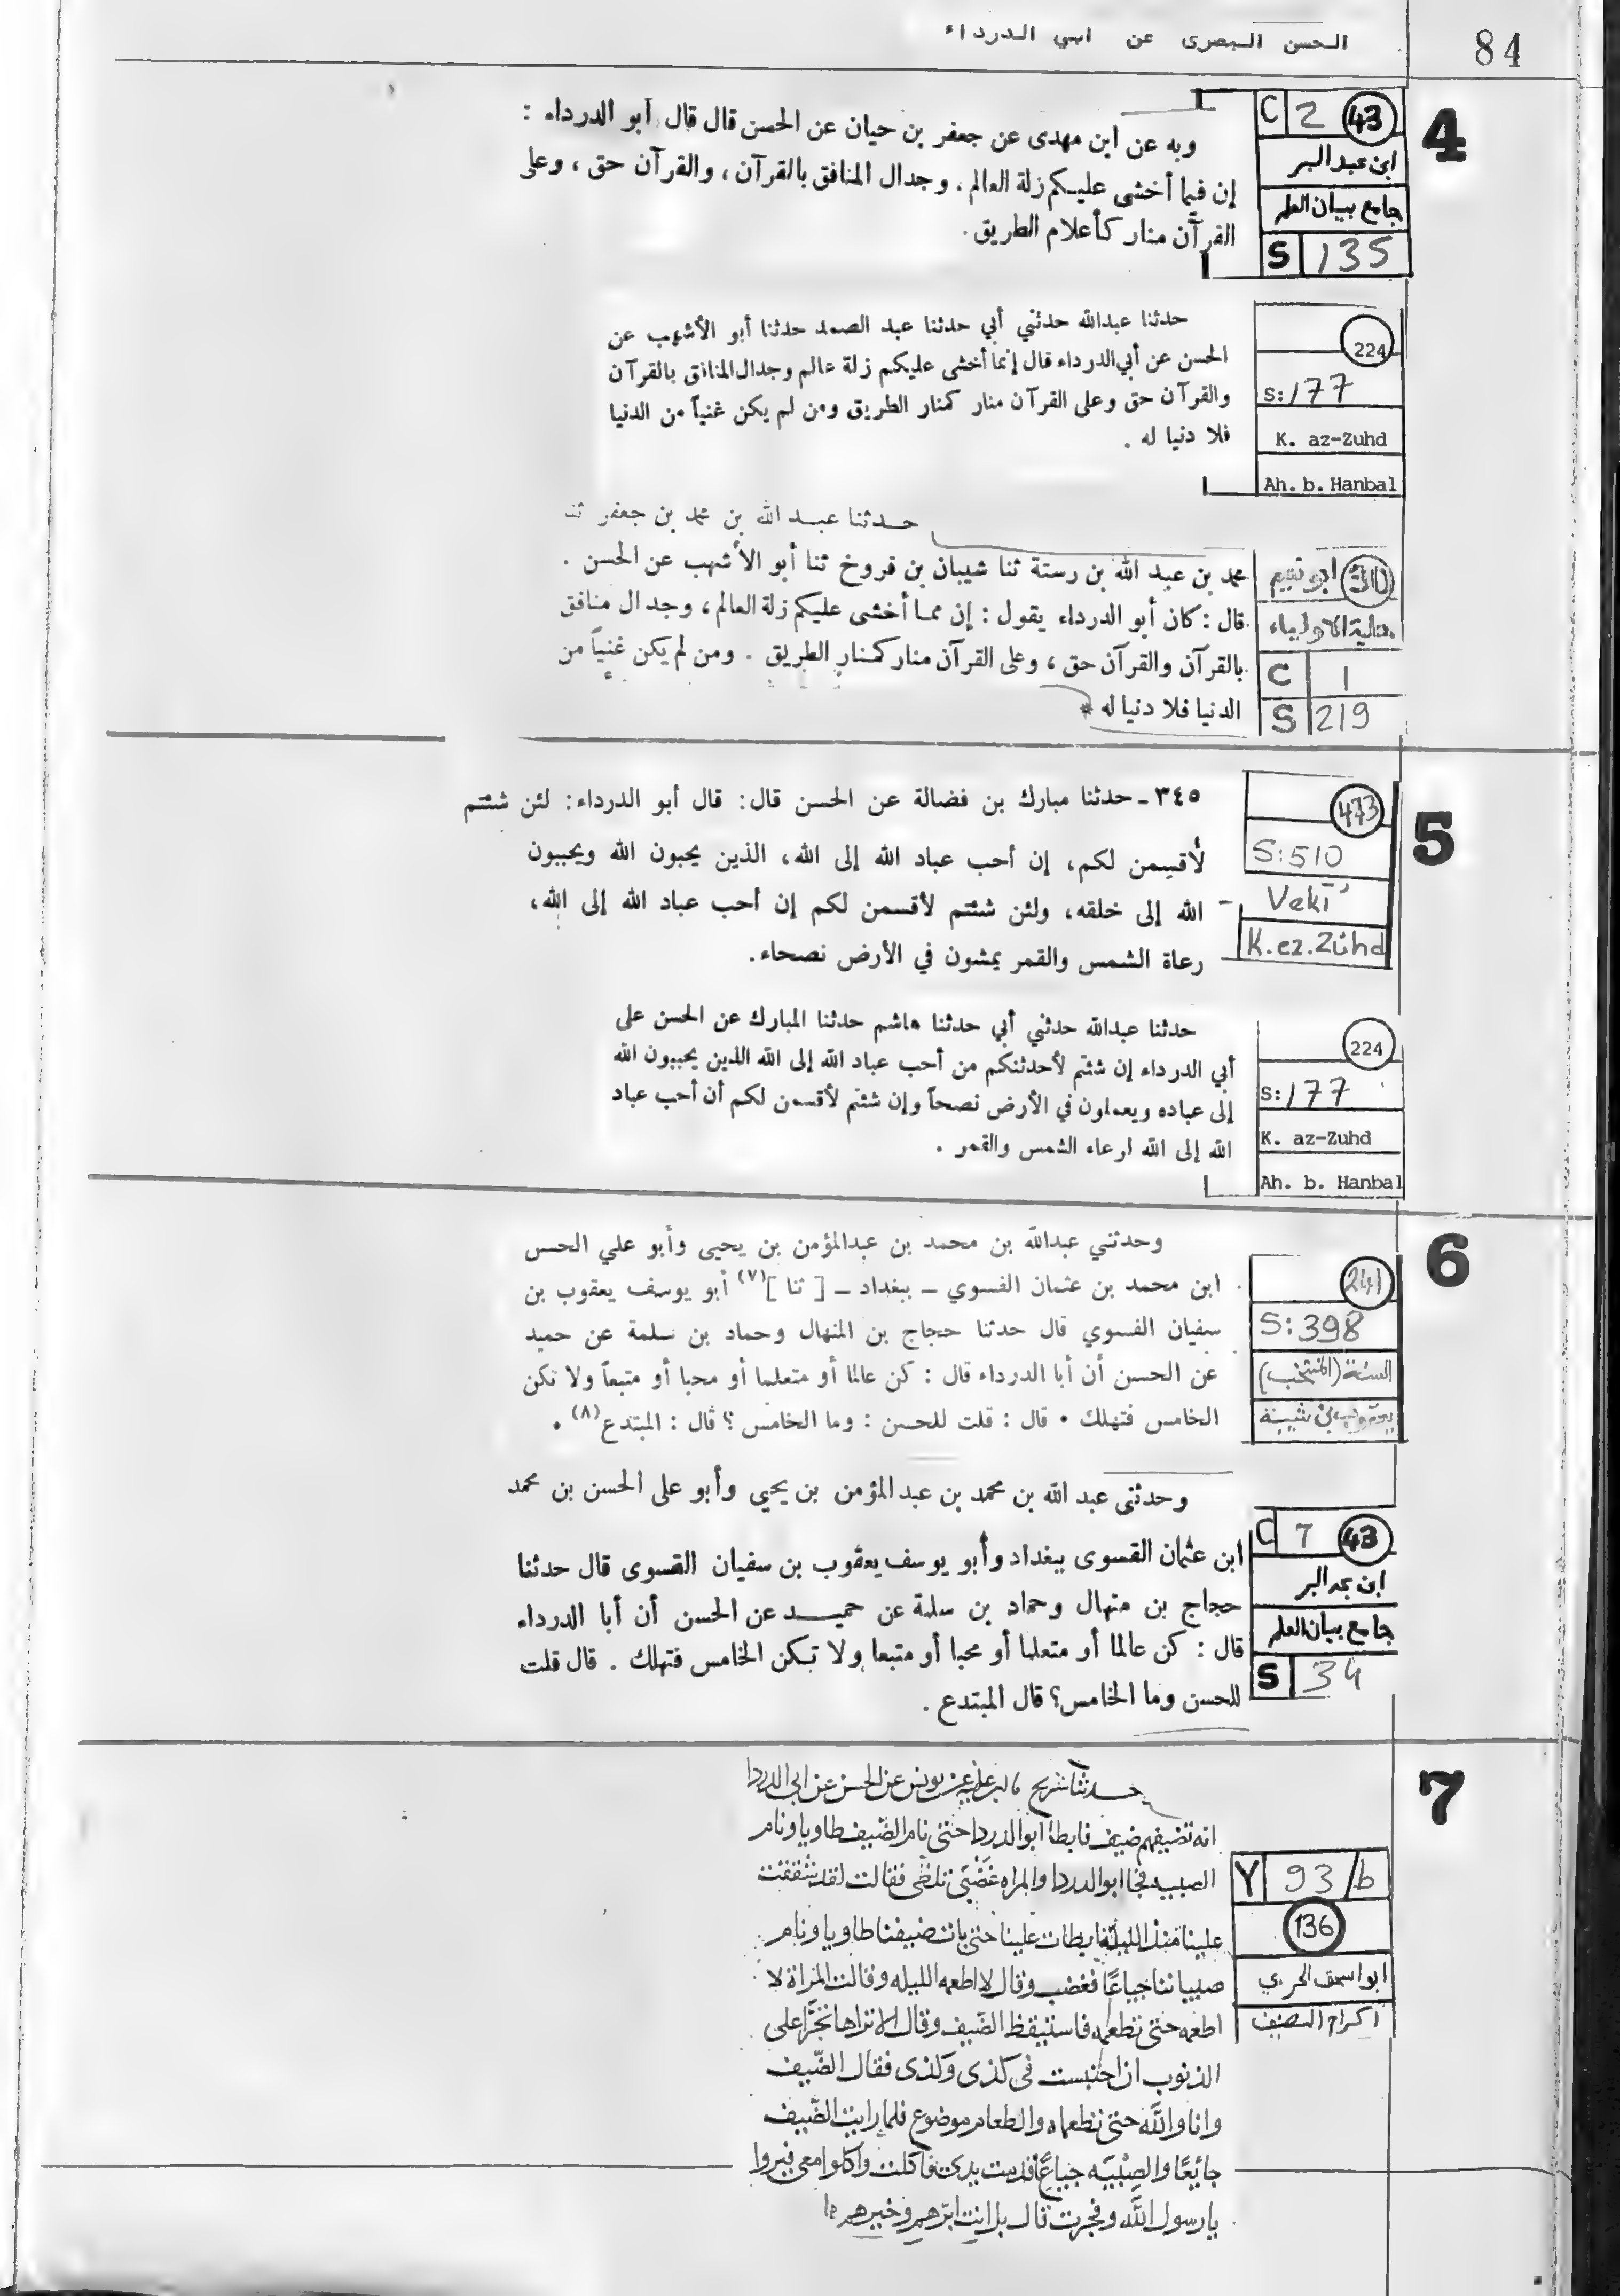 84
الحسن البصرى عن ابي الدرداء
4
C 2 43
ابن عبد البر
جامع بيان العلم
S 135
وبه عن ابن مهدى عن جعفر بن حيان عن الحسن قال قال أبو الدرداء :
إن فيما أخشى عليكم زلة العالم . وجدال المنافق بالقرآن ، والقرآن حق ، وعلى
القرآن منار كأعلام الطريق .
224
S: 177
K. az-Zuhd
Ah. b. Hanbal
حدثنا عبدالله حدثني أبي حدثنا عبد الصمد حدثنا أبو الأشهب عن
الحسن عن أبي الدرداء قال إنما أخشى عليكم زلة عالم وجدال المنافق بالقرآن
والقرآن حق وعلى القرآن منار كمنار الطريق ومن لم يكن غنياً من الدنيا
فلا دنيا له .
ابو نعيم
حلية الاولياء
C 1
S 219
حدثنا عبد الله بن محمد بن جعفر ثنا
محمد بن عبد الله بن رستة ثنا شيبان بن فروخ ثنا أبو الأشهب عن الحسن .
قال : كان أبو الدرداء يقول : إن مما أخشى عليكم زلة العالم ، وجدال منافق
بالقرآن والقرآن حق ، وعلى القرآن منار كمنار الطريق . ومن لم يكن غنياً من
الدنيا فلا دنيا له *
5
473
S: 510
Vekī'
K. ez. Zühd
٣٤٥ ـ حدثنا مبارك بن فضالة عن الحسن قال: قال أبو الدرداء: لئن شئتم
لأقسمن لكم، إن أحب عباد الله إلى الله، الذين يحبون الله ويحببون
الله إلى خلقه، ولئن شئتم لأقسمن لكم إن أحب عباد الله إلى الله،
رعاة الشمس والقمر يمشون في الأرض نصحاء.
224
S: 177
K. az-Zuhd
Ah. b. Hanbal
حدثنا عبدالله حدثني أبي حدثنا هاشم حدثنا المبارك عن الحسن على
أبي الدرداء إن شئتم لأحدثنكم من أحب عباد الله إلى الله الذين يحببون الله
إلى عباده ويعملون في الأرض نصحاً وإن شئتم لأقسمن لكم أن أحب عباد
الله إلى الله ارعاء الشمس والقمر .
6
241
S: 398
السنة (المنتخب)
يعقوب بن شيبة
وحدثني عبدالله بن محمد بن عبدالمؤمن بن يحيى وأبو علي الحسن
ابن محمد بن عثمان الفسوي ـ ببغداد ـ [ ثنا ](٧) أبو يوسف يعقوب بن
سفيان الفسوي قال حدثنا حجاج بن المنهال وحماد بن سلمة عن حميد
عن الحسن أن أبا الدرداء قال : كن عالما أو متعلما أو محبا أو متبعاً ولا تكن
الخامس فتهلك • قال : قلت للحسن : وما الخامس ؟ قال : المبتدع(٨) •
C 7 43
ابن عبد البر
جامع بيان العلم
S 34
وحدثنى عبد الله بن محمد بن عبد المؤمن بن يحيى وأبو على الحسن بن محمد
ابن عثمان القسوى ببغداد وأبو يوسف يعقوب بن سفيان القسوى قال حدثنا
حجاج بن منهال وحماد بن سلمة عن حميد عن الحسن أن أبا الدرداء
قال : كن عالما أو متعلما أو محبا أو متبعا ولا تكن الخامس فتهلك . قال قلت
للحسن وما الخامس؟ قال المبتدع .
7
Y 93/b
136
ابو اسحق الحربي
اكرام الضيف
حدثنا شريح عن يونس عن الحسن عن ابى الدردا
انه تضيفهم ضيف فابطا ابو الدردا حتى نام الضيف طاويا ونام
الصبيه فجا ابو الدردا والمراه غضبى تلظى فقالت لقد شققت
علينا منذ الليلة ابطات علينا حتى بات ضيفنا طاويا ونام
صبياننا جياعًا فغضب وقال لا اطعمه الليله وقالت المراة لا
اطعمه حتى تطعمه فاستيقظ الضيف وقال الا تراها تجرّا على
الذنوب ان احتبست فى كذى وكذى فقال الضيف
وانا والله حتى تطعماه والطعام موضوع فلما رايت الضيف
جائعًا والصبيه جياعًا قدمت يدى فاكلت واكلوا معى فبروا
يا رسول الله وفجرت قال بل انت ابرهم وخيرهم